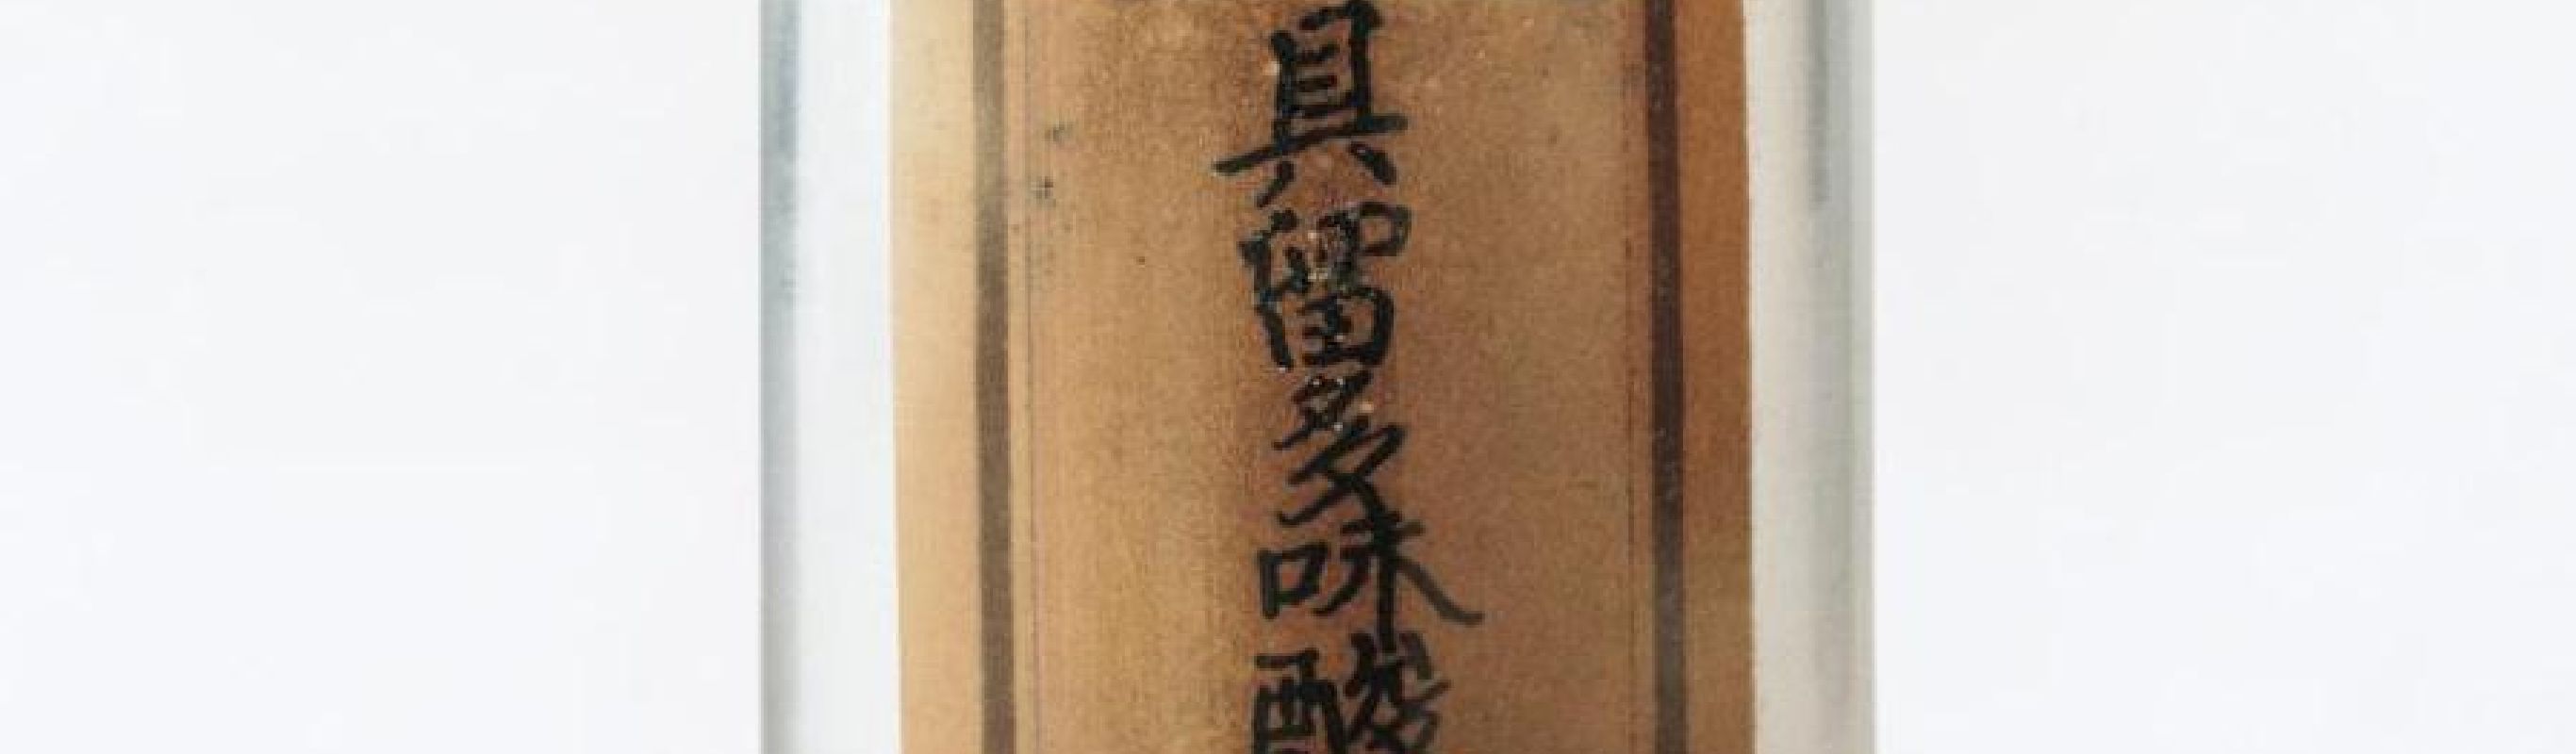 具留多味酸